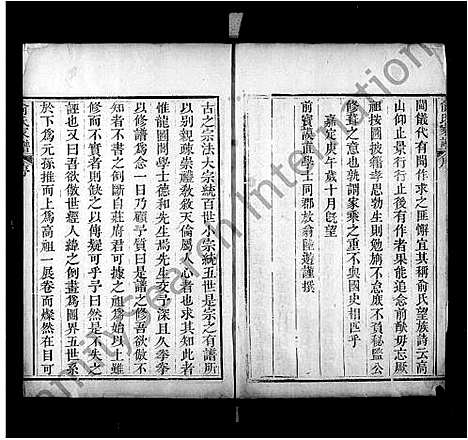 閫儀代有聞作求之匪懈宜其稱俞氏望族詩云高
山仰止景行行止後有作者果能追念前猷毋忝厥
祖按國披籍孝思勃生則勉旃不怠庶不負秘監公
修葺之意也孰謂家乘之重不與國史相匹乎
嘉定庚午歲十月既望
前寶謨閣直學士同郡放翁陸遊謹撰
古之宗法大宗統百世小宗統五世是宗之有譜所
以別親疎崇禮敎敘天倫屬人心者也求其知此者
惟龍圖閣學士德和先生焉先生交予深且久拳拳
以修譜爲念一日乃顧予質曰是譜之修吾欲做不
諱也又曰吾欲倣世經人緯之例畫爲圖界五世系
修而不實者則缺之以傳疑可乎予曰然是不失之
加者不書之例斷自莊府君可據之祖爲始以上雖
於下爲元孫推而上爲高祖一展卷而燦然在目可
俞氏家譜 序
FamilySearch International